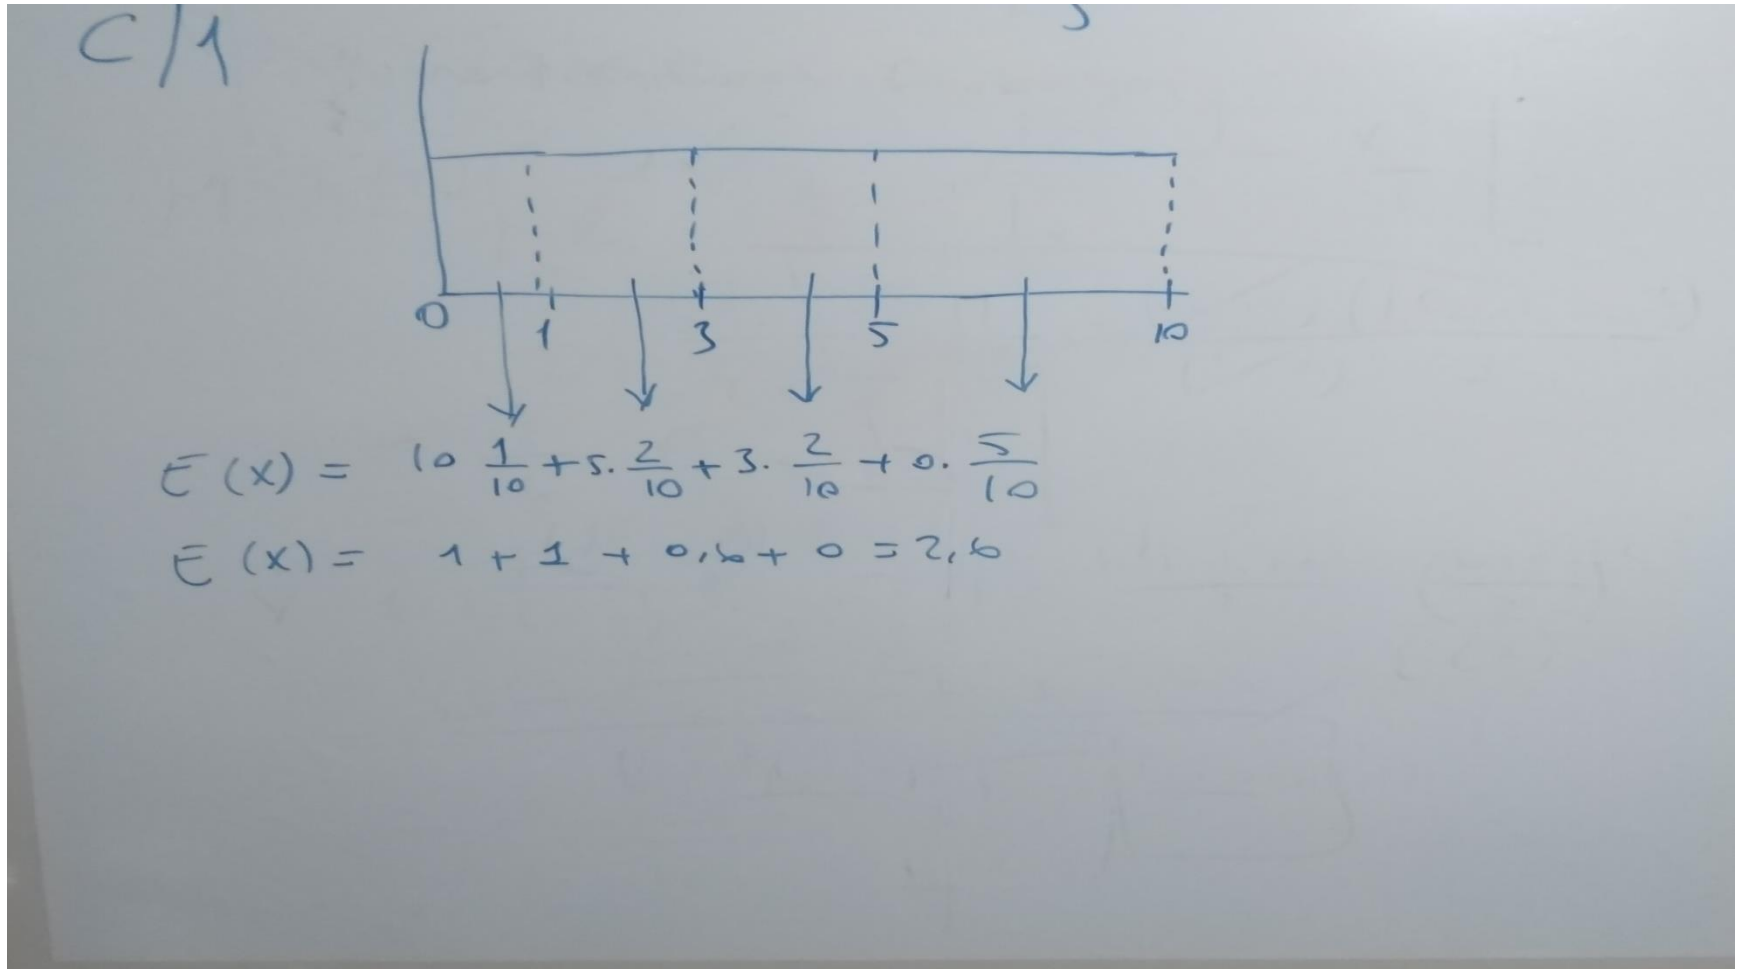 C/1
0 1 3 5 10
E(x) = 10 1/10 + 5. 2/10 + 3. 2/10 + 0. 5/10
E(x) = 1 + 1 + 0,6 + 0 = 2,6